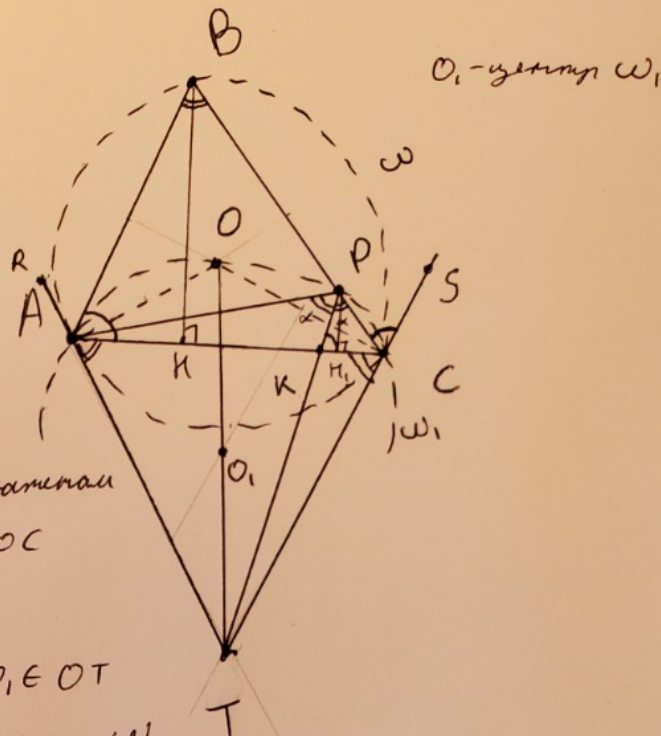 B
O₁-центр ω₁
ω
O
R
P
S
A
α
α
H
K
H₁
C
ω₁
O₁
OC
O₁ ∈ OT
T